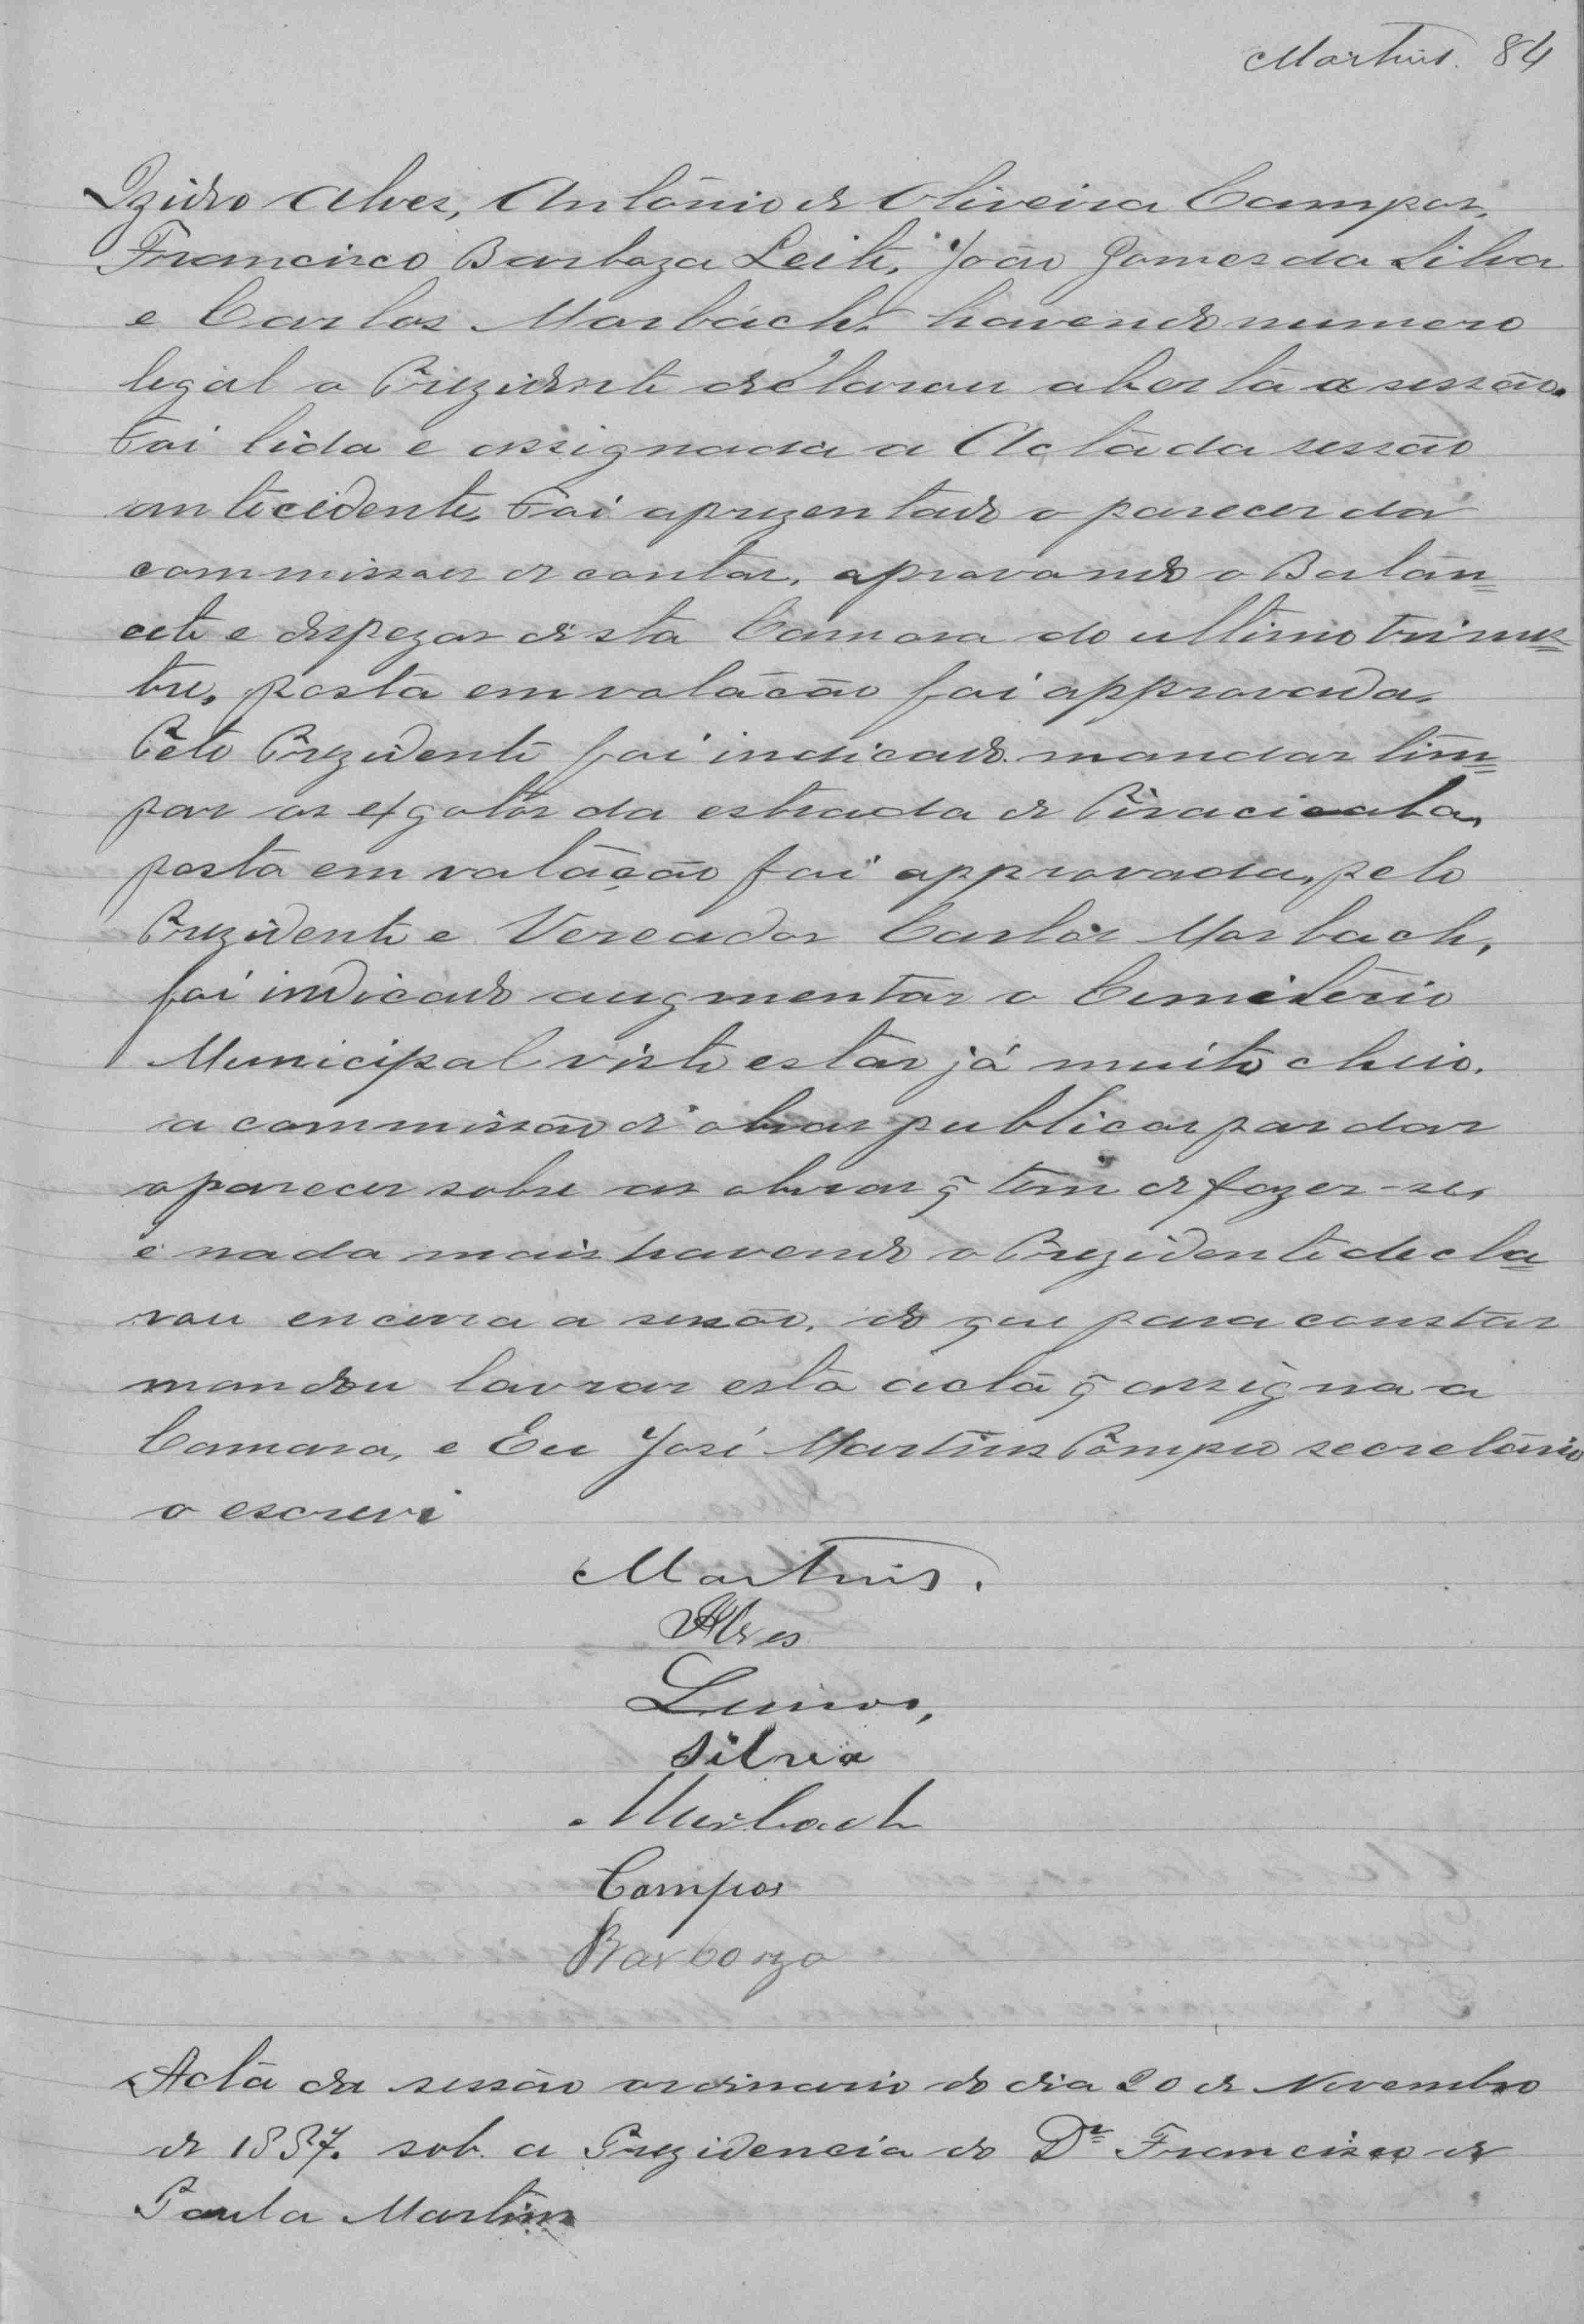 Martins. 84
Izidro Alves, António de Oliveira Campos,
Francisco Barboza Leite, João Gomes da Silva
e Carlos Marbach. havendo numero
legal o Prezidente declarou aberta a sessão.
Foi lida e assignada a Acta da sessão
antecedente. Foi aprezentado o parecer da
commissoes de contas, aprovando o Batan=
cete e despezas desta Camara do ultimo trimes=
tre, posta em votacão foi approvada.
Pelo Prezidente foi indicado mandar lim=
par os exgotos da estrada de Piracicaba,
posta em votação foi approvada, pelo
Prezidente e Vereador Carlos Marbach,
foi indicado augmentar o Cemiterio
Municipal visto estar já muito cheio.
a commissão d'obras publicas par dar
o parecer sobre as obras q̃ tem de fazer-se,
e nada mais havendo o Prezidente decla=
rou encerra a sessão, do que para constar
mandou lavrar esta acta q̃ assigna a
Camara, e Eu José Martins Pompeo secretário
o escrevi
Martins.
Alves
Lemos,
Silva
Murbach
Campos
Barboza
Acta da sessão ordinario do dia 20 de Novembro
de 1887. sob. a Prezidencia do Dr Francisco de
Paula Martins